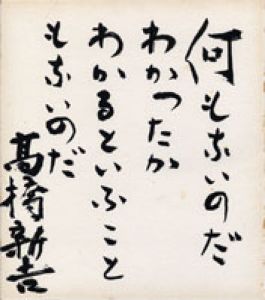 何もないのだ
わかつたか
わかるといふこと
もないのだ
高橋新吉